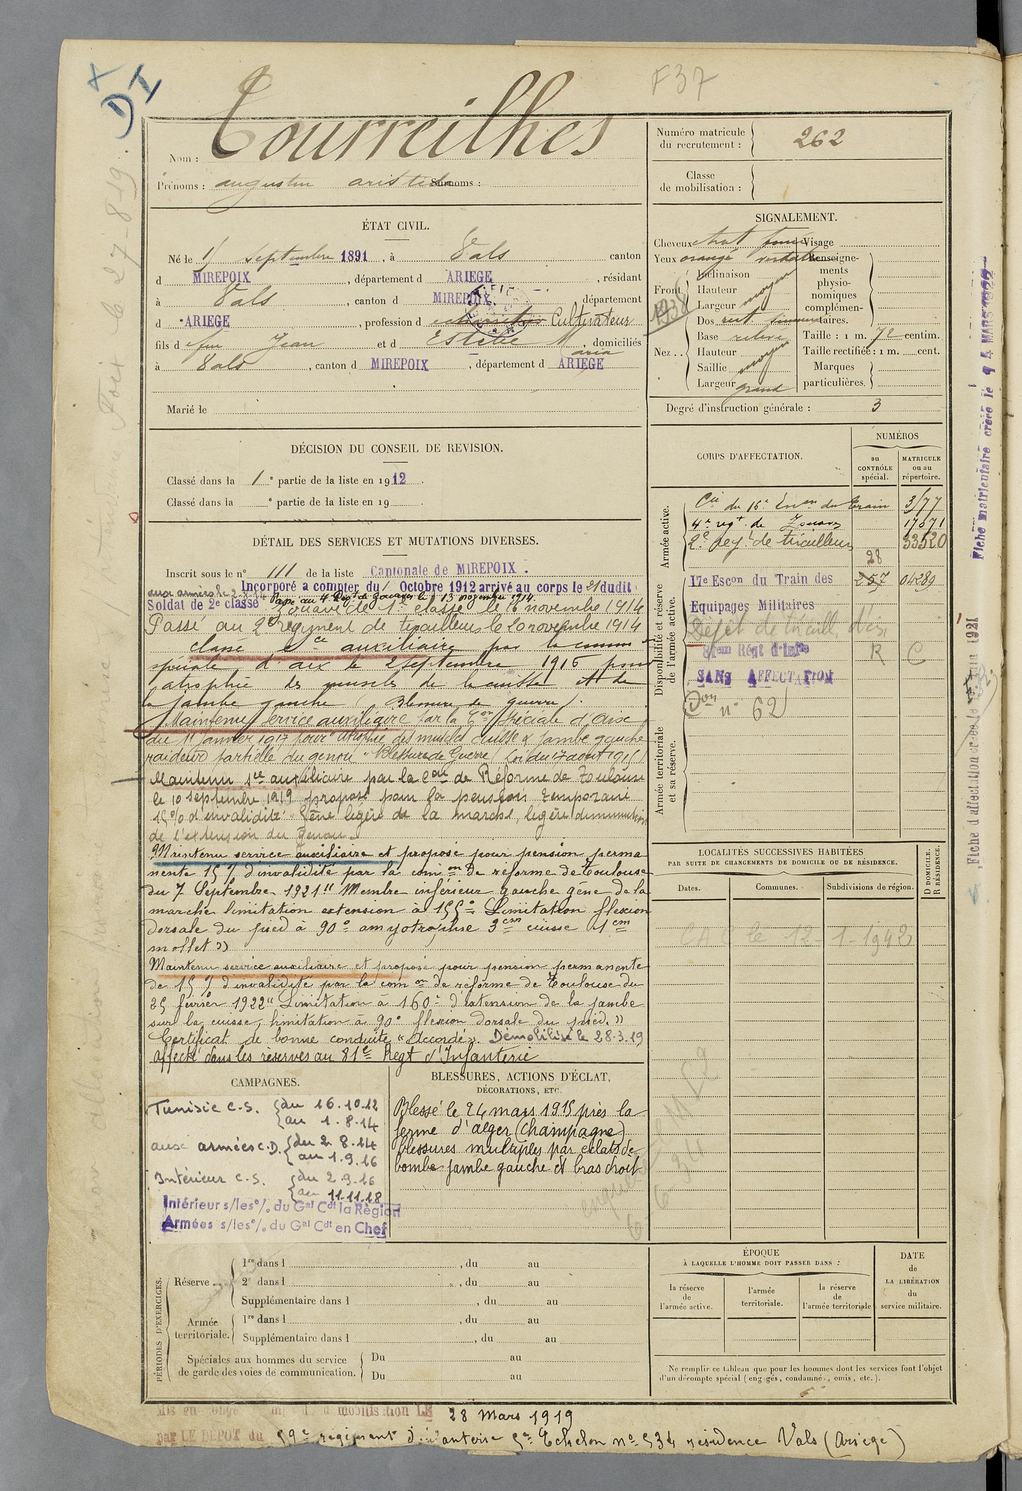 DI
F37
Nom : Tourreilhes
Prénoms : augustin aristide Surnoms :
Numéro matricule du recrutement : 262
Classe de mobilisation :
ÉTAT CIVIL.
Né le septembre 1891, à Vals canton
d MIREPOIX, département d ARIEGE, résidant
à Vals, canton d MIREPOIX, département
d ARIEGE, profession d Cultivateur
fils d Jean et d Estèbe Maria, domiciliés
à Vals, canton d MIREPOIX, département d ARIEGE
Marié le
SIGNALEMENT.
Cheveux chat foncé Visage
Yeux orangé verdâtre Renseignements physionomiques complémentaires.
Front Inclinaison
Hauteur moyen
Largeur
Nez Dos
Base
Hauteur moyen
Saillie
Largeur grand
Taille : 1 m. 72 centim.
Taille rectifiée : 1 m. cent.
Marques particulières.
Degré d'instruction générale : 3
DÉCISION DU CONSEIL DE REVISION.
Classé dans la 1e partie de la liste en 1912
Classé dans la e partie de la liste en 19
DÉTAIL DES SERVICES ET MUTATIONS DIVERSES.
Inscrit sous le n° 111 de la liste Cantonale de MIREPOIX.
Incorporé à compter du 1 Octobre 1912 arrivé au corps le dudit
Soldat de 2e classe Passé au 4e Régt de Zouaves le 13 novembre 1914
Zouave de 1e classe le 16 novembre 1914
Passé au 2e régiment de tirailleurs le 20 novembre 1914
classé sce auxiliaire par la comm
spéciale d'aix le 2 septembre 1916 pour
atrophie des muscles de la cuisse et de
la jambe gauche. Blessure de guerre.
Maintenu service auxiliaire par la Con Spéciale d'Aix
du 11 janvier 1917 pour atrophie des muscles cuisse & jambe gauche
raideur partielle du genou "Blessure de Guerre"
Maintenu sce auxiliaire par la con de Réforme de Toulouse
le 10 septembre 1919 proposé pour la pension temporaire
15% d'invalidité "Gêne légère de la marche, légère diminution
de l'extension du Genou"
Maintenu service auxiliaire et proposé pour pension perma
nente 15% d'invalidité par la com on de réforme de Toulouse
du 7 Septembre 1921 "Membre inférieur gauche gêne de la
marche limitation extension à 155° Limitation flexion
dorsale du pied à 90° amyotrophie 3cm cuisse 1cm
mollet"
Maintenu service auxiliaire et proposé pour pension permanente
de 15% d'invalidité par la com on de réforme de Toulouse du
25 février 1922 "Limitation à 160° d'extension de la jambe
sur la cuisse, limitation à 90° flexion dorsale du pied."
Certificat de bonne conduite "Accordé". Démobilisé le 28.3.19
Affecté dans les réserves au 81e Regt d'Infanterie
CORPS D'AFFECTATION.
NUMÉROS
au CONTRÔLE spécial.
MATRICULE ou au répertoire.
Armée active.
Cie du 16e Eon du Train 3177
4e regt de Zouaves 17571
2e Regt de tirailleurs 33520
Disponibilité et réserve de l'armée active.
28
17e Escon du Train des 257 04289
Equipages Militaires
Dépôt de tiraill.
81em Régt d'Infie R C
SANS AFFECTATION
Don n° 62
Armée territoriale et sa réserve.
LOCALITÉS SUCCESSIVES HABITÉES
PAR SUITE DE CHANGEMENTS DE DOMICILE OU DE RÉSIDENCE.
Dates. Communes. Subdivisions de région.
D DOMICILE. R RÉSIDENCE.
le 12-1-1942
CAMPAGNES.
Tunisie C.S. du 16.10.12
au 1.8.14
aux armées C.D. du 2.8.14
au 1.9.16
Intérieur C.S. du 2.9.16
au 11.11.18
Intérieur s/les % du Gal Cdt la Région
Armées s/les % du Gal Cdt en Chef
BLESSURES, ACTIONS D'ÉCLAT,
DÉCORATIONS, ETC.
Blessé le 24 mars 1915 près la
ferme d'alger (Champagne)
blessures multiples par éclats de
bombe jambe gauche et bras droit
PÉRIODES D'EXERCICES.
Réserve 1re dans l , du au
2e dans l , du au
Supplémentaire dans l , du au
Armée territoriale. 1re dans l , du au
Supplémentaire dans l , du au
Spéciales aux hommes du service Du au
de garde des voies de communication. Du au
ÉPOQUE
À LAQUELLE L'HOMME DOIT PASSER DANS :
la réserve de l'armée active.
l'armée territoriale.
la réserve de l'armée territoriale
DATE de LA LIBÉRATION du service militaire.
Ne remplir ce tableau que pour les hommes dont les services font l'objet
d'un décompte spécial (engagés, condamnés, omis, etc.).
mobilisation LE 28 Mars 1919
par LE DÉPOT du 59e regiment d'infanterie 5e Echelon n° 534 résidence Vals (Ariège)
Fiche matriculaire créée le 4 MARS
Fiche d'affectation créée le 1921